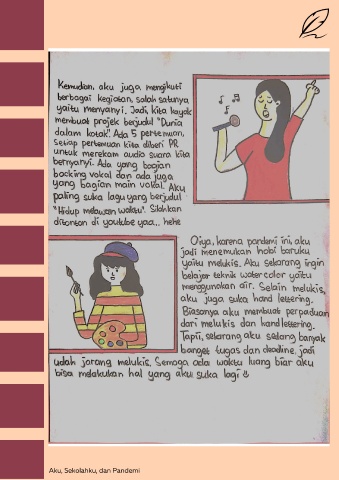 Kemudian, aku juga mengikuti
berbagai kegiatan, salah satunya
yaitu menyanyi. Jadi, kita kayak
membuat projek berjudul "Dunia
dalam kotak". Ada 5 pertemuan,
setiap pertemuan kita diberi PR
untuk merekam audio suara kita
bernyanyi. Ada yang bagian
backing vokal dan ada juga
yang bagian main vokal. Aku
paling suka lagu yang berjudul
"Hidup melawan waktu". Silahkan
ditonton di youtube yaa.. hehe
Oiya, karena pandemi ini, aku
jadi menemukan hobi baruku
yaitu melukis. Aku sekarang ingin
belajar teknik watercolor yaitu
menggunakan air. Selain melukis,
aku juga suka hand lettering.
Biasanya aku membuat perpaduan
dari melukis dan hand lettering.
Tapii, sekarang aku sedang banyak
banget tugas dan deadline, jadi
udah jarang melukis. Semoga ada waktu luang biar aku
bisa melakukan hal yang aku suka lagi
Aku, Sekolahku, dan Pandemi